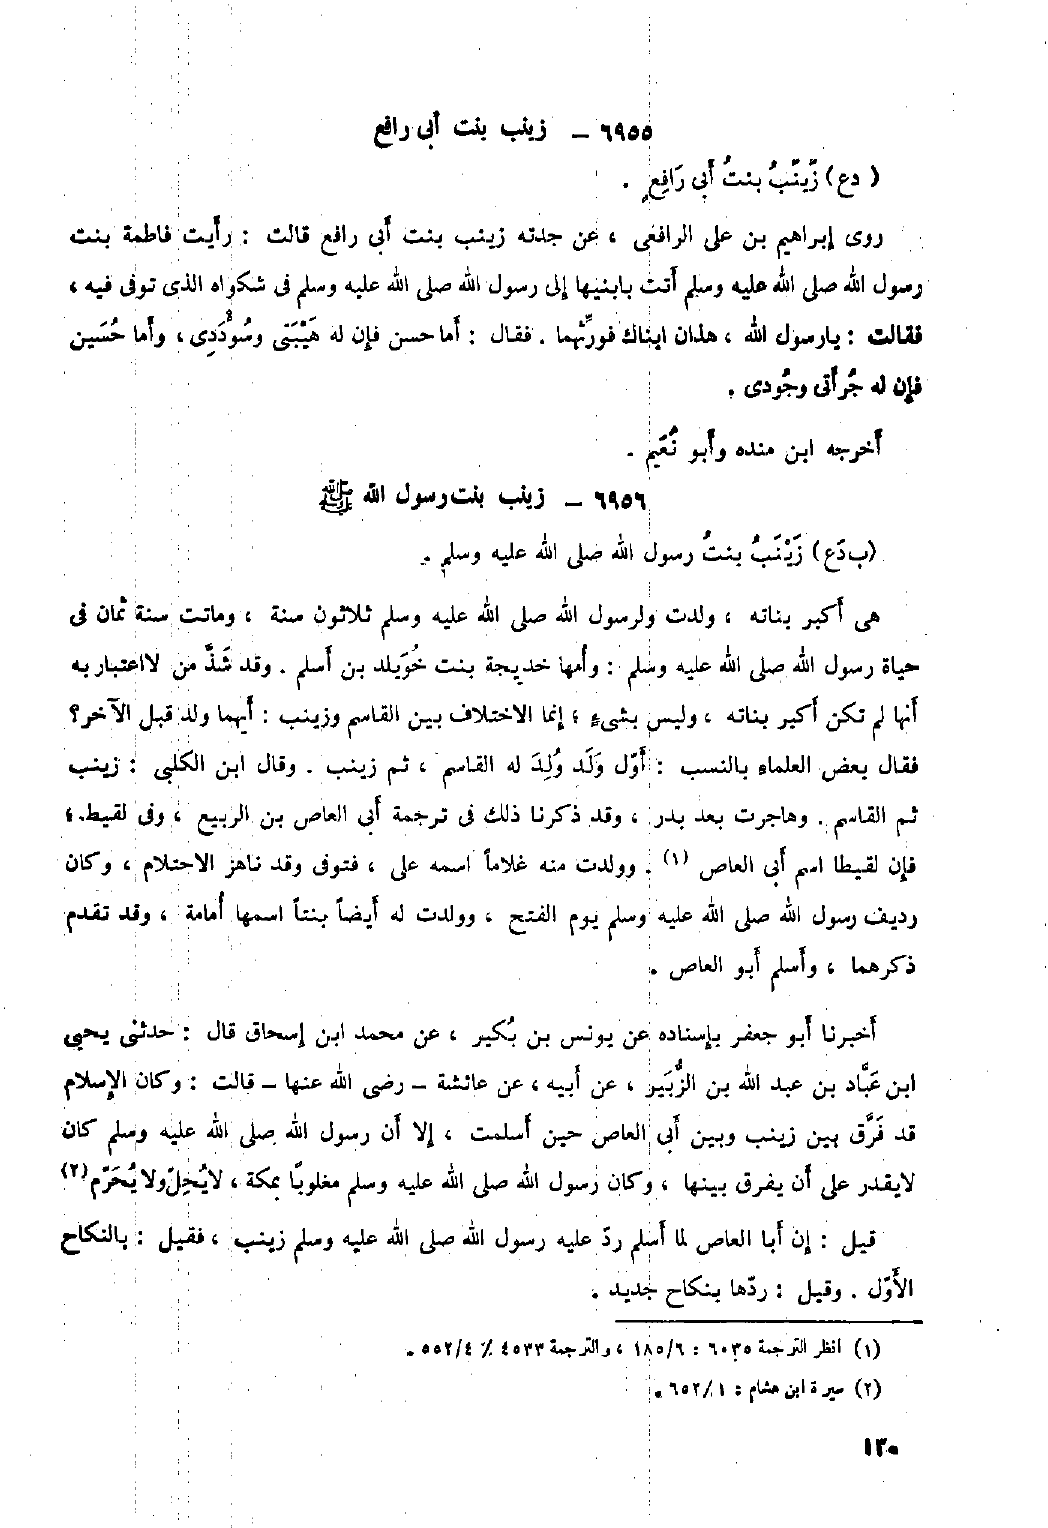 ٦٩٥٥ – زينب بنت أبى رافع
( دع) زَيْنَبُ بنتُ أبى رَافِعٍ .
روى إبراهيم بن على الرافعى ، عن جدته زينب بنت أبى رافع قالت : رأيت فاطمة بنت
رسول الله صلى الله عليه وسلم أتت بابنيها إلى رسول الله صلى الله عليه وسلم فى شكواه الذى توفى فيه ،
فقالت : يارسول الله ، هذان ابناك فورِّثهما . فقال : أما حسن فإن له هَيْبَتى وسُؤْدَدِى ، وأما حُسَين
فإن له جُرأتى وجُودى .
أخرجه ابن منده وأبو نُعَيم .
٦٩٥٦ – زينب بنت رسول الله ﷺ
(ب دَع) زَيْنَبُ بنتُ رسول الله صلى الله عليه وسلم .
هى أكبر بناته ، ولدت ولرسول الله صلى الله عليه وسلم ثلاثون سنة ، وماتت سنة ثمان فى
حياة رسول الله صلى الله عليه وسلم : وأمها خديجة بنت خُوَيلد بن أسلم . وقد شَذَّ من لااعتبار به
أنها لم تكن أكبر بناته ، وليس بشىءٍ ؛ إنما الاختلاف بين القاسم وزينب : أيهما ولد قبل الآخر؟
فقال بعض العلماء بالنسب : أوّل وَلَد وُلِدَ له القاسم ، ثم زينب . وقال ابن الكلبى : زينب
ثم القاسم . وهاجرت بعد بدر ، وقد ذكرنا ذلك فى ترجمة أبى العاص بن الربيع ، وفى لقيط ؛
فإن لقيطا اسم أبى العاص (١) . وولدت منه غلاماً اسمه على ، فتوفى وقد ناهز الاحتلام ، وكان
رديف رسول الله صلى الله عليه وسلم يوم الفتح ، وولدت له أيضاً بنتاً اسمها أُمامة ، وقد تقدم
ذكرهما ، وأسلم أبو العاص .
أخبرنا أبو جعفر بإسناده عن يونس بن بُكير ، عن محمد ابن إسحاق قال : حدثنى يحيى
ابن عَبَّاد بن عبد الله بن الزُّبَير ، عن أبيه ، عن عائشة – رضى الله عنها – قالت : وكان الإسلام
قد فَرَّق بين زينب وبين أبى العاص حين أسلمت ، إلا أن رسول الله صلى الله عليه وسلم كان
لايقدر على أن يفرق بينها ، وكان رسول الله صلى الله عليه وسلم مغلوبًا بمكة ، لايُحِلّ ولا يُحَرّم (٢)
قيل : إن أبا العاص لما أسلم ردّ عليه رسول الله صلى الله عليه وسلم زينب ، فقيل : بالنكاح
الأَوّل . وقيل : ردّها بنكاح جديد .
(١) انظر الترجمة ٦٠٣٥ : ٦/١٨٥ ، والترجمة ٤٥٣٣ ٪ ٤/٥٥٢ .
(٢) سيرة ابن هشام : ١/٦٥٢ .
١٣٠